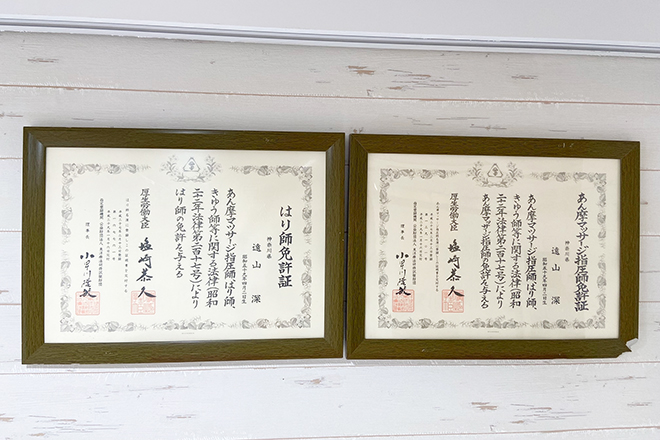 はり師免許証
神奈川県
遠山 潔
昭和五十九年四月三日生
あん摩マツサージ指圧師、はり師、
きゆう師等に関する法律(昭和
二十二年法律第二百十七号)により
はり師の免許を与える
厚生労働大臣 塩崎恭久
理事長
あん摩マツサージ指圧師免許証
神奈川県
遠山 潔
昭和五十九年四月三日生
あん摩マツサージ指圧師、はり師、
きゆう師等に関する法律(昭和
二十二年法律第二百十七号)により
あん摩マツサージ指圧師の免許を与える
厚生労働大臣 塩崎恭久
理事長